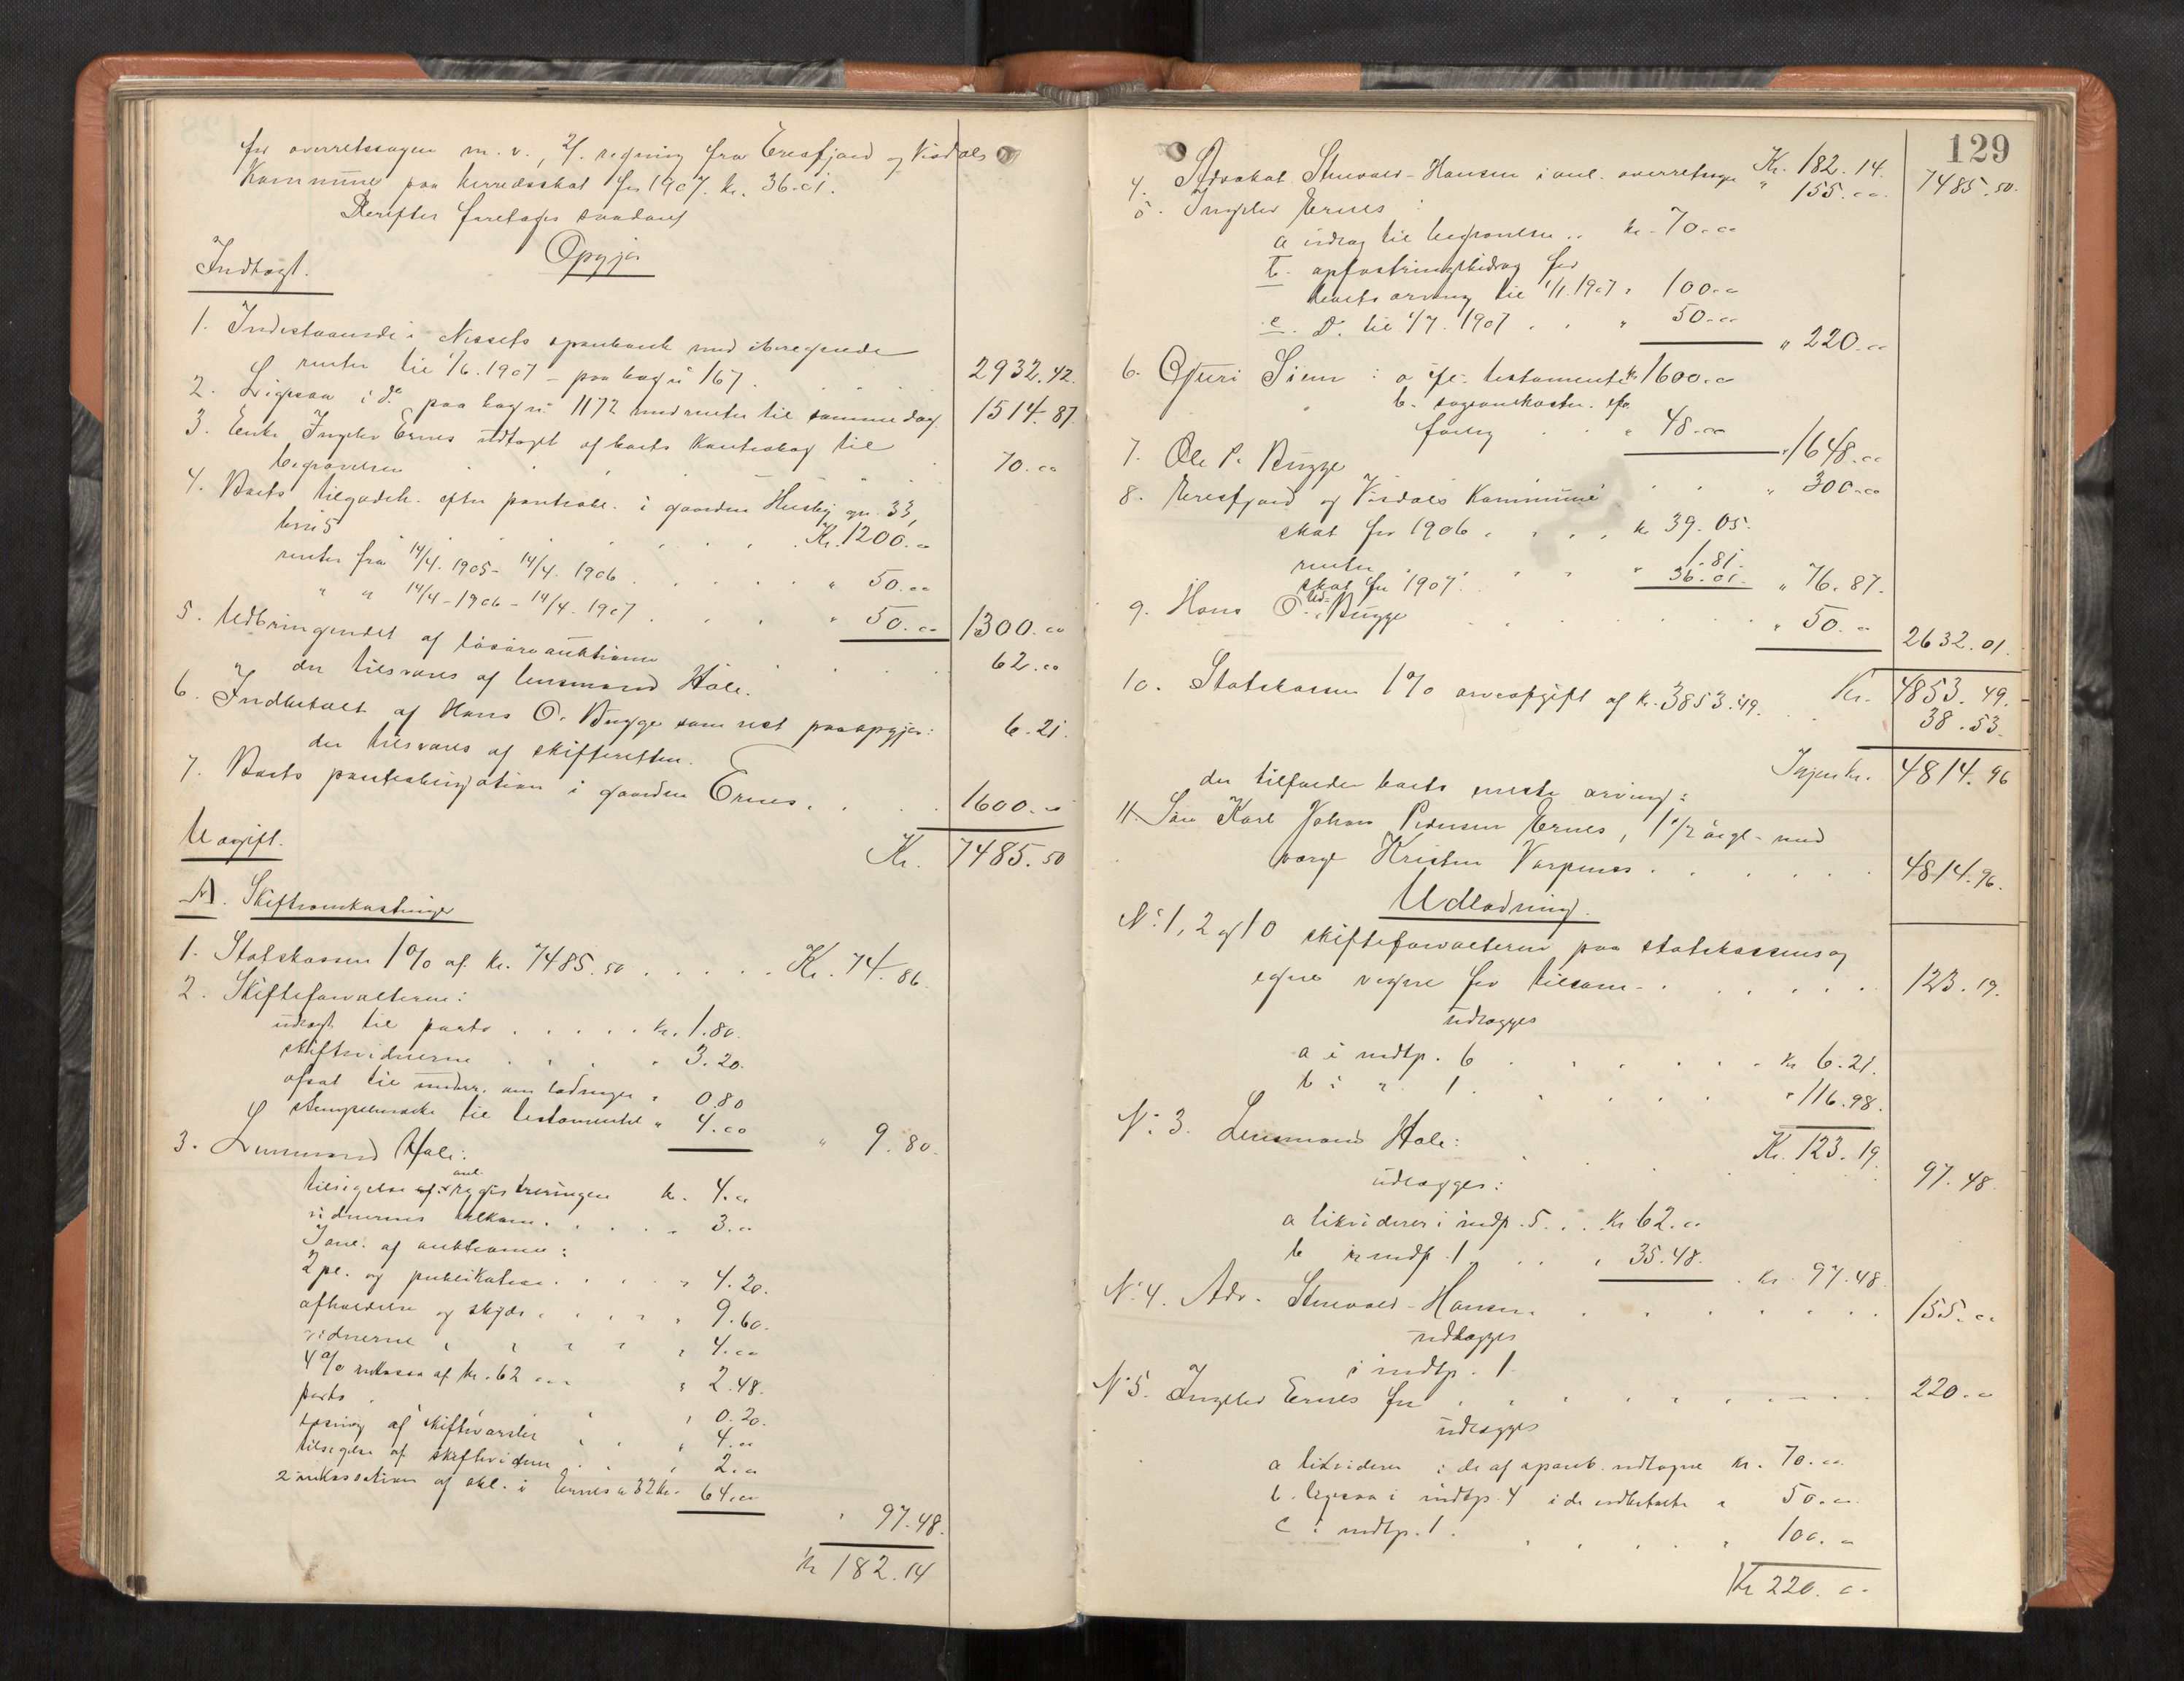 for overretssagen m. v., 2/. regning fra Eresfjord og Visdals
Kommune paa herredsskat for 1907. kr. 36.01.
Derefter foretages saadant
Opgjør
Indtægt.
1. Indestaaende i Nessets sparebank med iberegnede
renter til 1/6.1907 - paa bog nr 167. 2932.42.
2. Ligesaa i do paa bog nr 1172 med renter til samme dag. 1514.87
3. Enke Ingeber Ernes udtaget af boets kontrabog til
begravelsen 70.00
4. Boets tilgodeh. efter panteobl. i gaarden Husby gr. 33,
brn 5 Kr. 1200.00
renter fra 14/4. 1905 - 14/4. 1906 . . . . " 50.00
" " 14/4 - 1906 - 14/4. 1907 . . . " 50.00 1300.00
5. Udbringendet af løsøreauktionen
der tilsvares af lensmand Hole. 62.00
6. Indbetalt af Hans O. Bugge som rest paa opgjør:
der tilsvares af skifteretten. 6.21.
7. Boets panteobligation i gaarden Ernes. . . . 1600.00
Kr. 7485.50
Udgift.
A. Skifteomkostninger
1. Statskassen 1% af kr. 7485.50 . . . . . Kr. 74.86.
2. Skifteforvalteren:
udlagt til porto . . . . . kr. 1.80.
skiftevidnerne . . . . " 3.20.
afsat til underr. om lodninger " 0.80
stempelmærke til testamentet " 4.00 " 9.80.
3. Lensmand Hole:
tilsigelse anl. registreringen kr. 4.00
vidnernes . . . . " 3.00
I anl. af auktionen:
2 pl. og publikation . . . . " 4.20.
afholdelse og skyds . . . . " 9.60.
vidnerne " 4.00
4% inkasso af kr. 62.00 " 2.48.
porto " 0.20.
af skiftevarsler " 4.00
tilsigelse af skiftevidner " 2.00
2 inkassation af obl. i Ernes a 32 kr. 64.00
" 97.48.
kr 182.14
129
Kr. 182.14. 7485.50.
4. Advokat Stuevold-Hansen i anl. overretssagen " 155.00.
5. Ingeber Ernes:
a udlæg til begravelsen .. kr. 70.00
b. opfostringsbidrag for
boets arving til 1/1.1907 " 100.00
c. Do. til 1/7. 1907 . . " 50.00
" 220.00
6. Guri Siem : a ifl. testamente kr 1600.00
b. sagsomkostn. efter
forlig . . " 48.00 " 1648.00
7. Ole P. Bugge . . . " 300.00
8. Eresfjord og Visdals Kommune
skat for 1906 . . . . kr 39.05.
renter . . . " 1.81.
skat for 1907. 36.01. " 76.87.
9. Hans O. Bugge . . . . . " 50.00 2632.01.
Kr. 4853.49.
10. Statskassen 1% arveafgift af kr. 3853.49. . . 38.53.
Igjen kr. 4814.96
der tilfalder boets eneste arving:
11. Søn Karl Johan Pedersen Ernes, 1 1/2 aar gl. med
værge Kristen Varpenes . . . . . 4814.96.
Udlodning.
No 1, 2 og 10 skifteforvalteren paa statskassens og
egne vegne for tilsam. . . . . . . 123.19.
udlægges
a i indtp. 6 . . . . . . . kr 6.21.
b i " 1. . . . . . " 116.98.
Kr. 123.19.
No 3. Lensmand Hole: 97.48.
udlægges:
a likviderer i indp. 5 . . kr 62.00
b i indp. 1 . . " 35.48.
kr. 97.48.
No 4. Adv. Stuevold-Hansen . . . . . . . 155.00
udlægges
i indtp. 1
No 5. Ingeber Ernes for . . . . . . 220.00
udlægges
a likviderer i de af spareb. udtagne kr. 70.00.
b. ligesaa i indtp. 4 i de indbetalte " 50.00.
c i indtp. 1. . . . . " 100.00
Kr 220.00